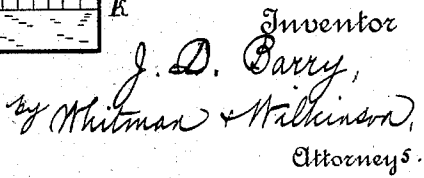 k
Inventor
J. D. Barry,
by Whitman & Wilkinson,
Attorneys.